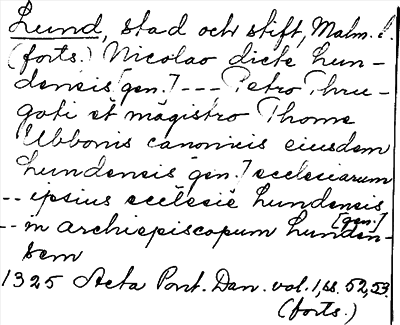 Lund, stad och stift, Malm. l.
(forts.) Nicolao dicte Lun-
densis [gen.] --- Petro Thru-
goti et magistro Thome
Ubbonis canonicis eiusdem
Lundensis [gen.] ecclesiarum
-- ipsius ecclesie Lundensis [gen.]
-- in archiepiscopum Lunden-
sem
1325 Acta Pont. Dan. vol. 1, ss. 52, 53.
(forts.)